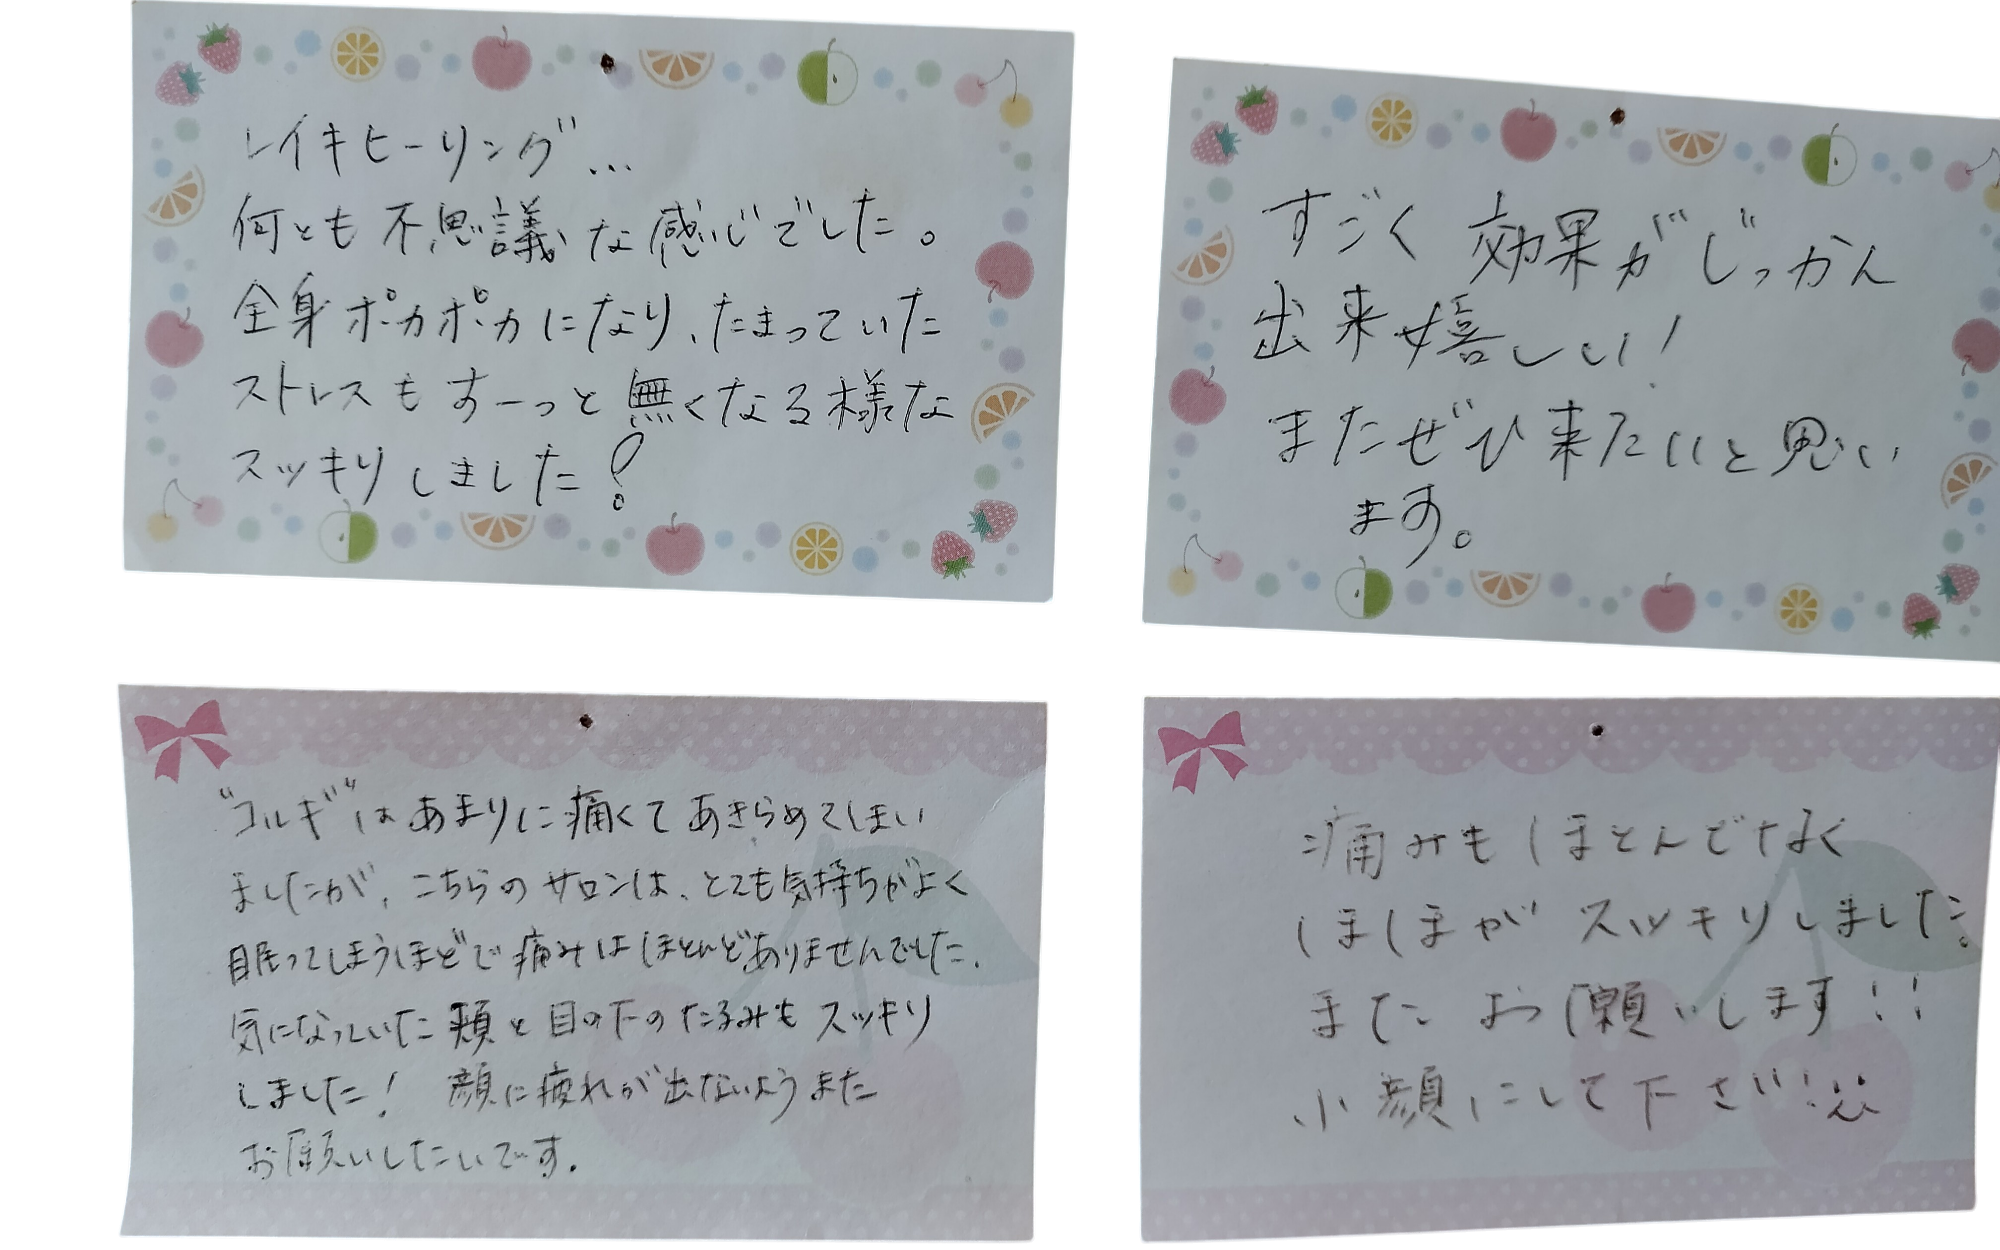 レイキヒーリング…
何とも不思議な感じでした。
全身ポカポカになり、たまっていた
ストレスもすーっと無くなる様な
スッキリしました!
すごく効果がじっかん
出来嬉しい!
またぜひ来たいと思い
ます。
"コルギ"はあまりに痛くてあきらめてしまい
ましたが、こちらのサロンは、とても気持ちがよく
眠ってしまうほどで痛みはほとんどありませんでした.
気になっていた頬と目の下のたるみもスッキリ
しました! 顔に疲れが出ないようまた
お願いしたいです.
痛みもほとんどなく
ほほがスッキリしました。
またお願いします!!
小顔にして下さい!